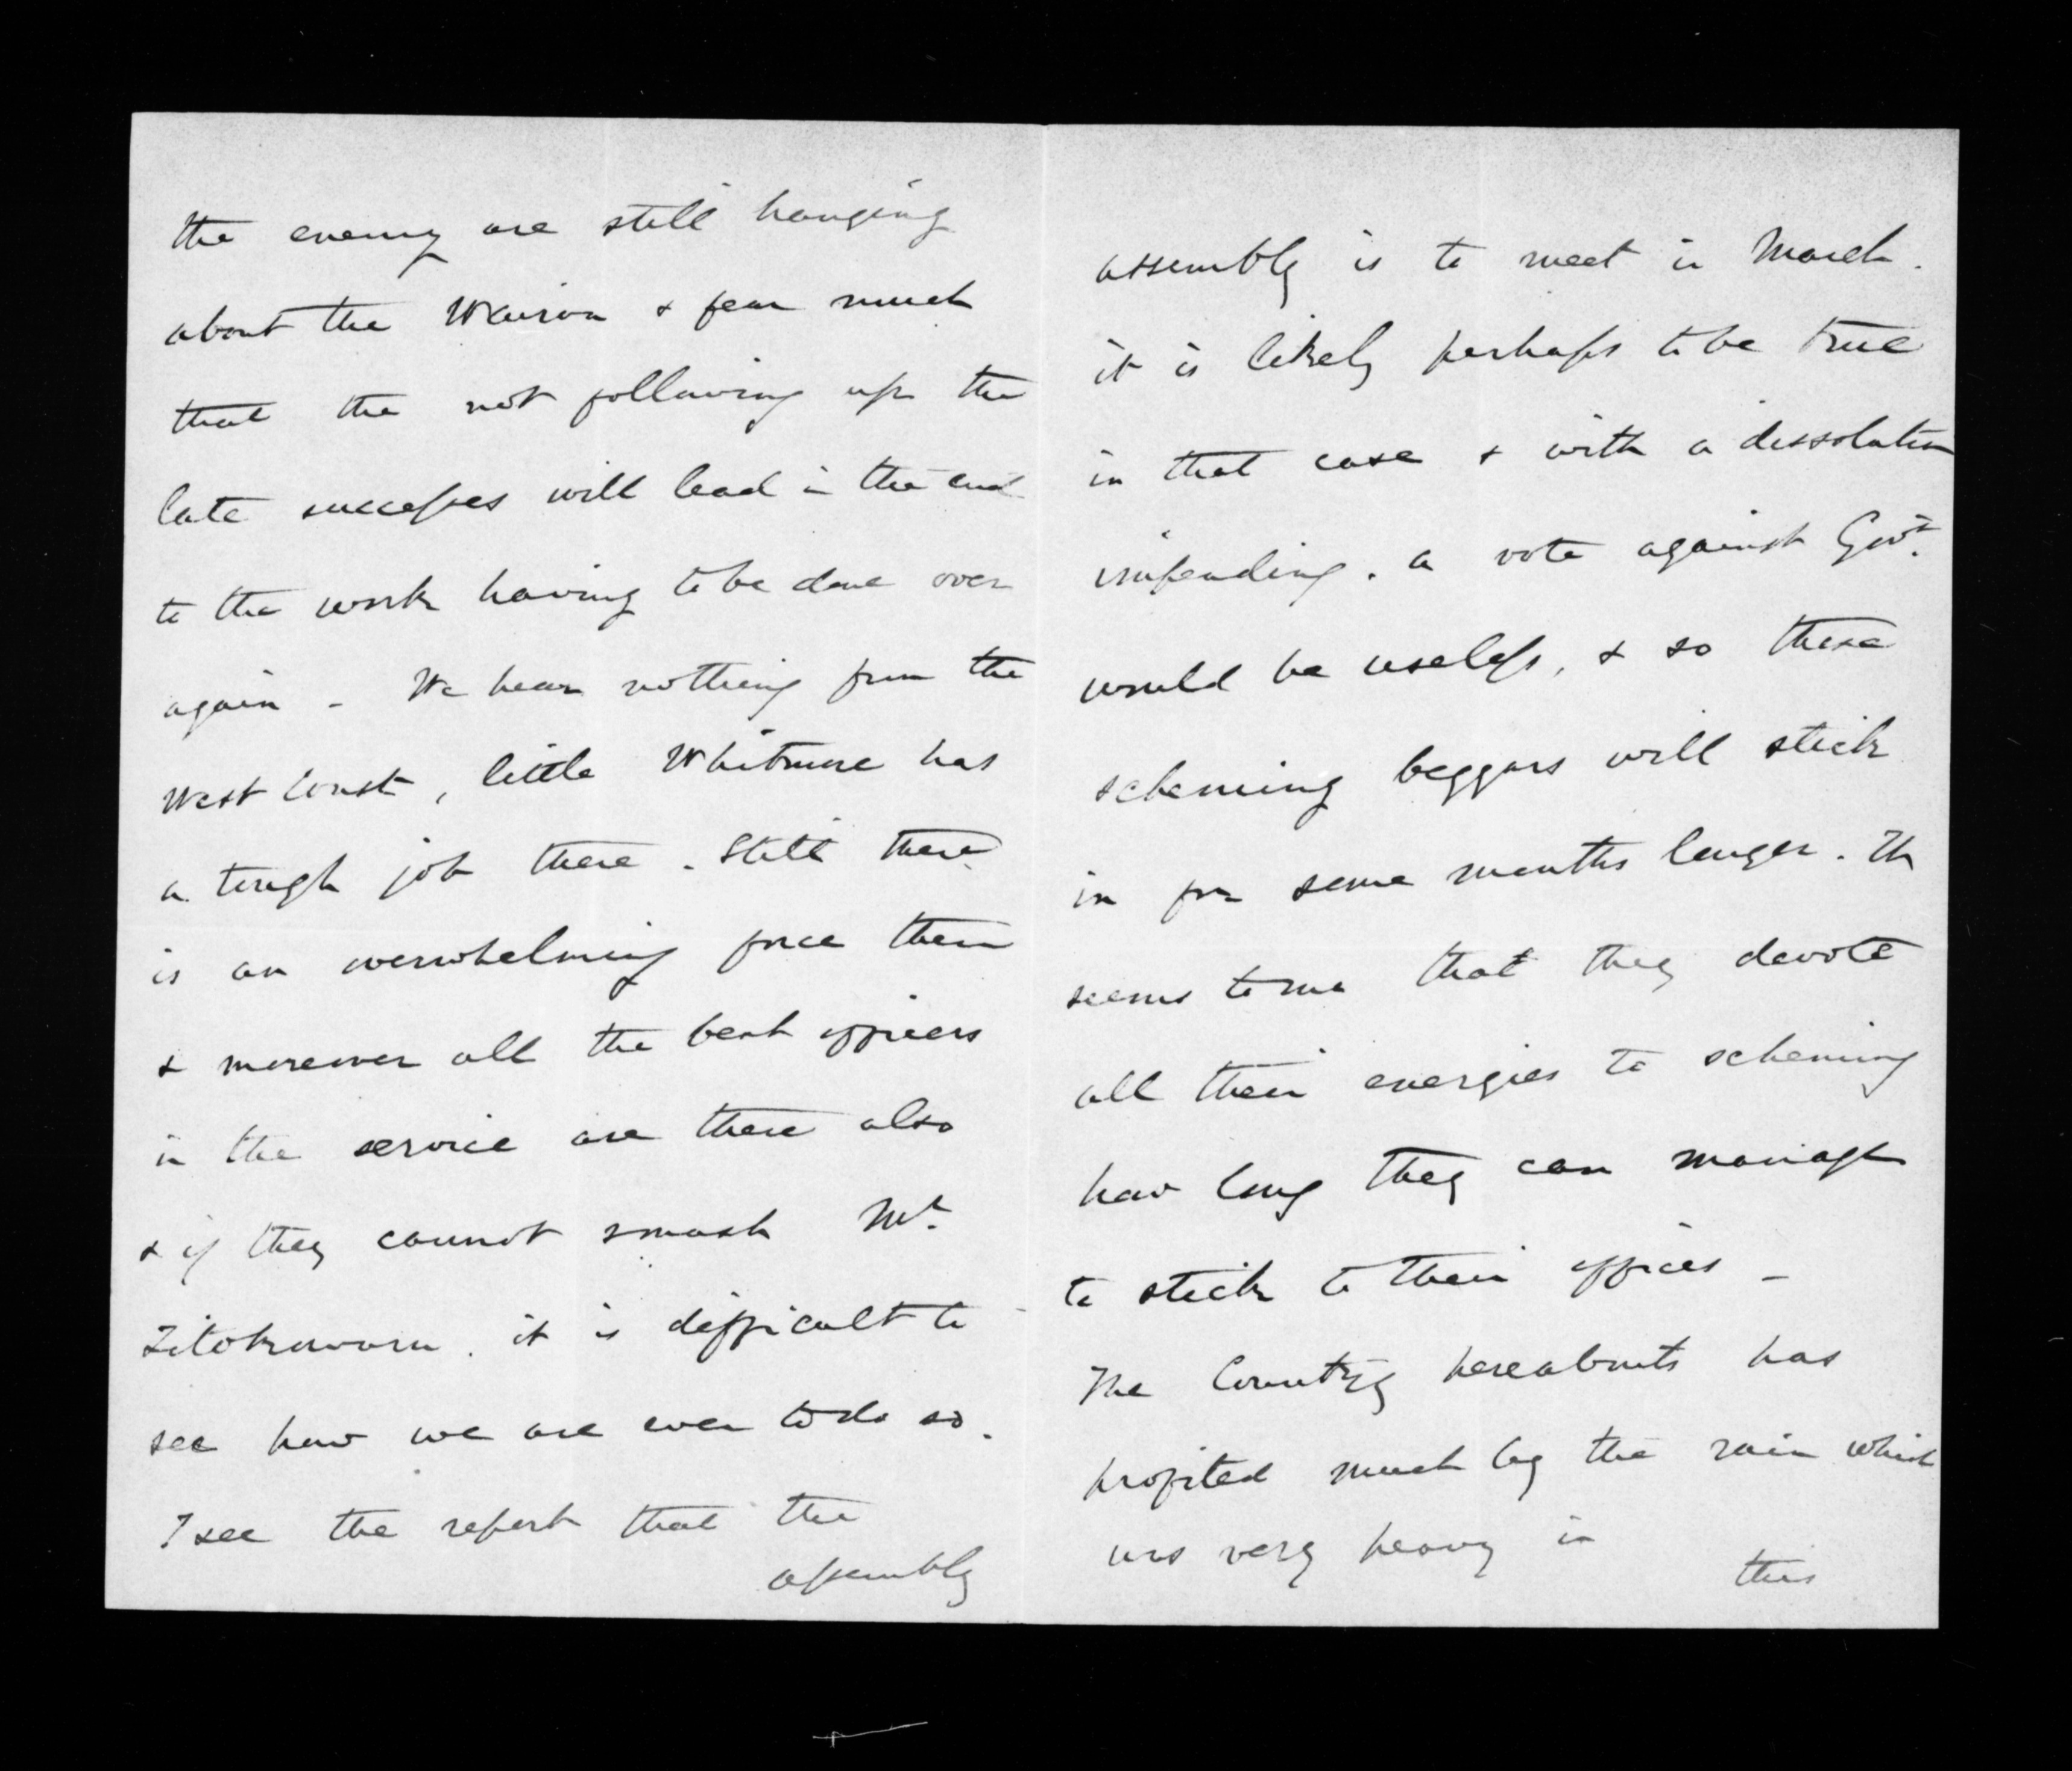 the enemy are still hanging
about the Wairoa & fear much
that the not following up the
late successes will lead in the end
to the work having to be done over
again - We hear nothing from the
West Coast, little Whitmore has
a tough job there. Still there
is an overwhelming force there
& moreover all the best officers
in the service are there also
& if they cannot smash Mr.
Titokowaru. it is difficult to
see how we are ever to do so.
I see the report that the
assembly
assembly is to meet in March.
it is likely perhaps to be true
in that case & with a dissolution
impending. a vote against Govt.
would be useless, & so these
scheming beggars will stick
in for some months longer. It
seems to me that they devote
all their energies to scheming
how long they can manage
to stick to their offices -
The Country hereabouts has
profited much by the rain which
was very heavy in
this